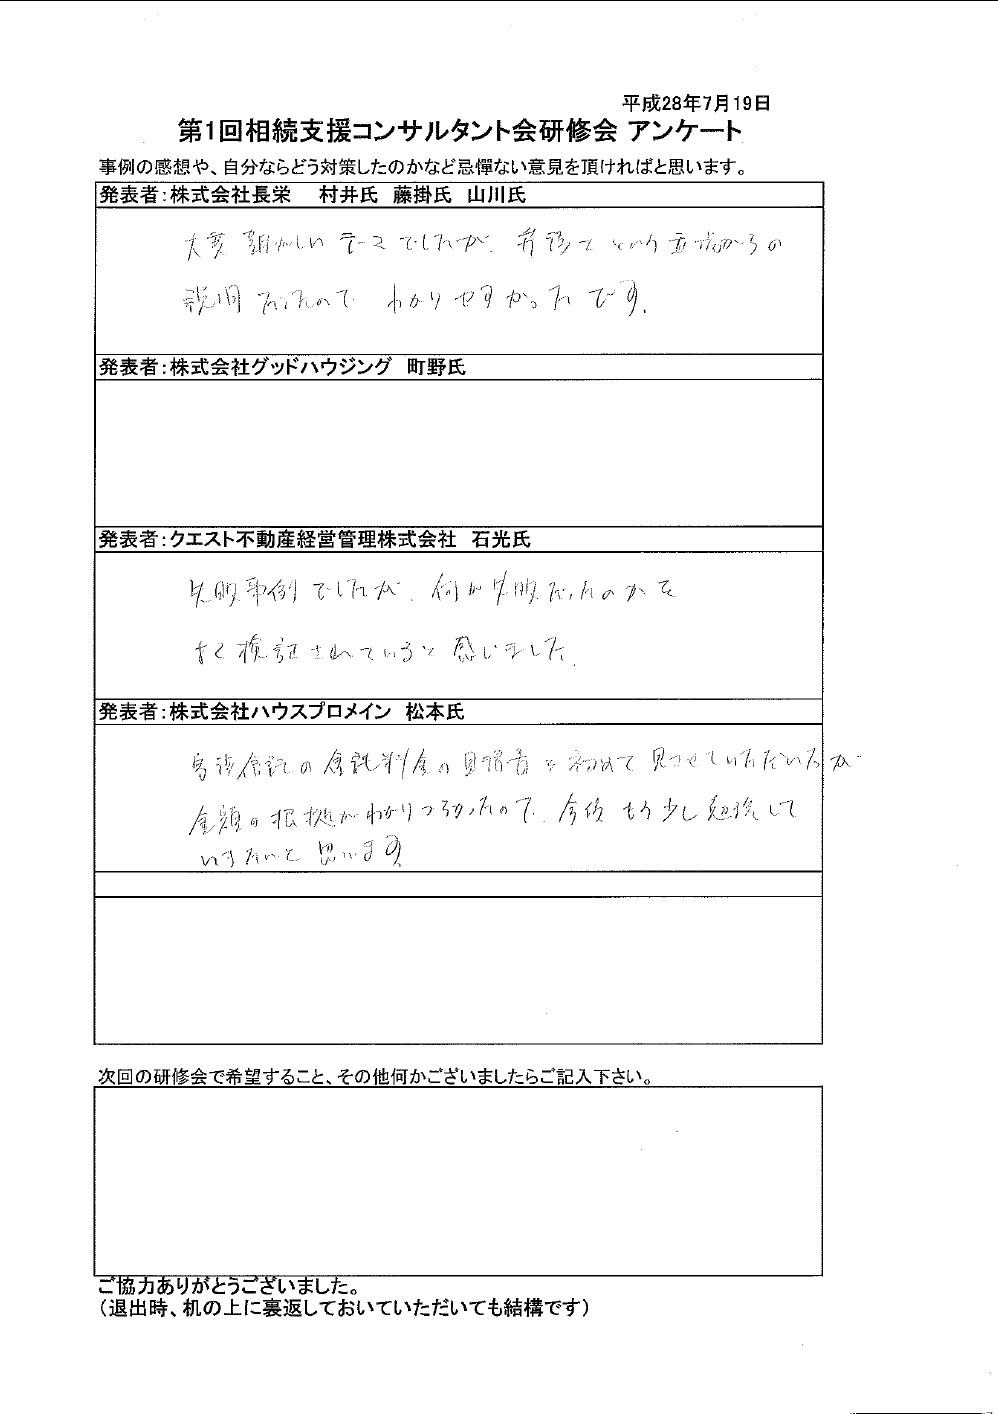 平成28年7月19日
第1回相続支援コンサルタント会研修会 アンケート
事例の感想や、自分ならどう対策したのかなど忌憚ない意見を頂ければと思います。
発表者：株式会社長栄　村井氏　藤掛氏　山川氏
大変難かしいテーマでしたが、という立場からの
説明だったので わかりやすかったです。
発表者：株式会社グッドハウジング　町野氏
発表者：クエスト不動産経営管理株式会社　石光氏
失敗事例でしたが、何が失敗だったのかを
よく検証されていると感じました。
発表者：株式会社ハウスプロメイン　松本氏
信託の信託料金の見積書を初めて見させていただいたが
金額の根拠がわかりづらかったので、今後もう少し勉強して
いきたいと思います
次回の研修会で希望すること、その他何かございましたらご記入下さい。
ご協力ありがとうございました。
（退出時、机の上に裏返しておいていただいても結構です）